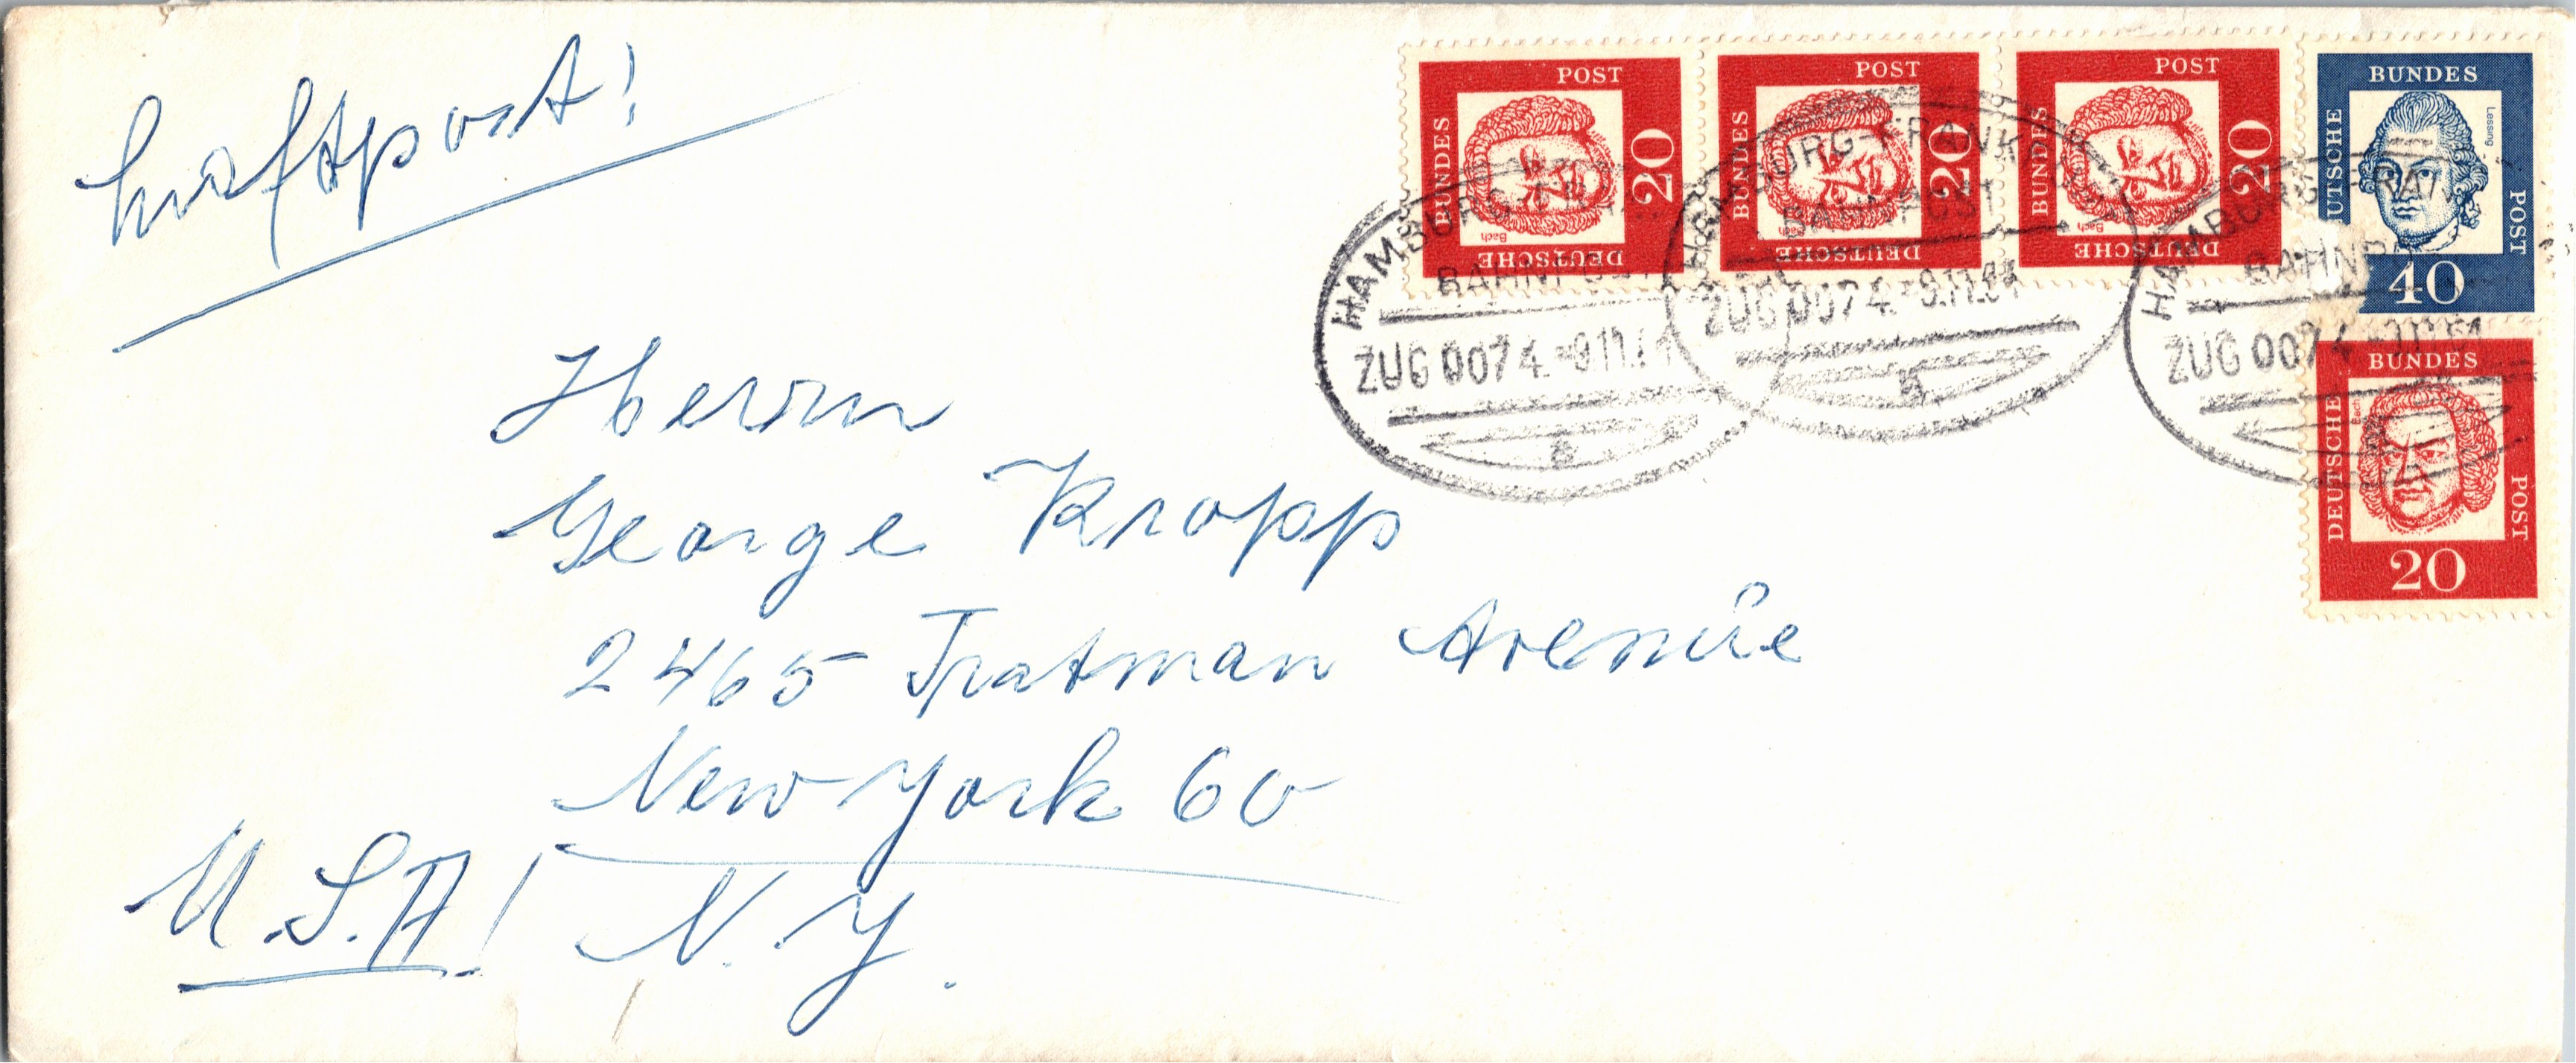 Luftpost!
POST
BUNDES
20
Bach
DEUTSCHE
POST
BUNDES
20
Bach
DEUTSCHE
POST
BUNDES
20
Bach
DEUTSCHE
BUNDES
DEUTSCHE
Lessing
POST
40
BUNDES
DEUTSCHE
Bach
POST
20
HAMBURG-
BAHNPOST
ZUG 0074 -9.11.
a
HAMBURG-FRANKF
BAHNPOST
ZUG 0074 -9.11.61
a
HAMBURG-FRAN
BAHNP
ZUG 0074 -9.11.61
Herrn
George Kropp
2465 Tratman Avenüe
New York 60
U.S.A! N.Y.